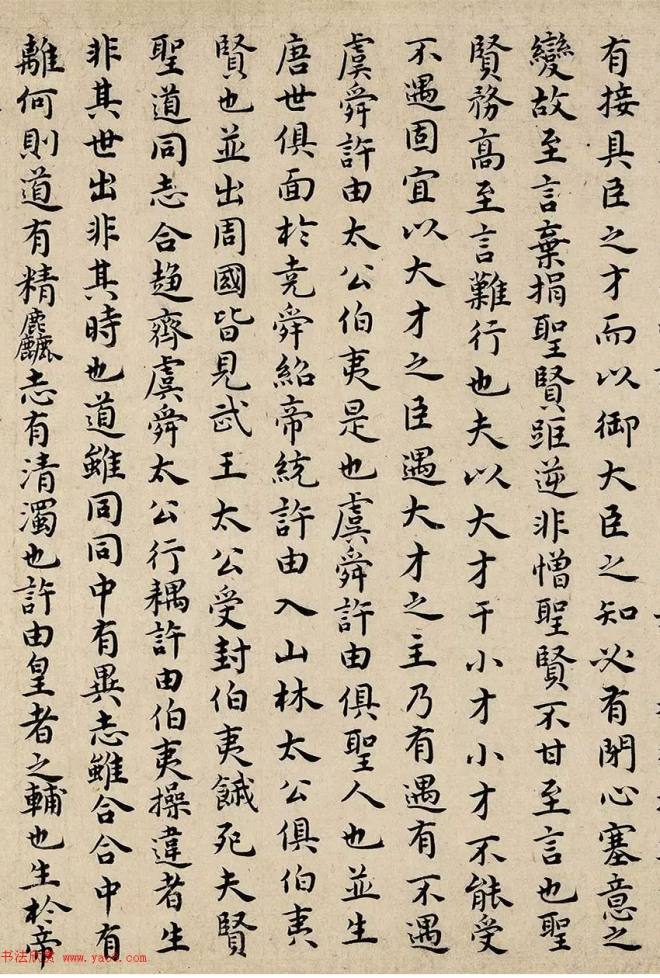 有接具臣之才而以御大臣之知必有閇心塞意之
變故至言棄捐聖賢距逆非憎聖賢不甘至言也聖
賢務高至言難行也夫以大才干小才小才不能受
不遇固宜以大才之臣遇大才之主乃有遇有不遇
虞舜許由太公伯夷是也虞舜許由俱聖人也並生
唐世俱面於堯舜紹帝統許由入山林太公俱伯夷
賢也並出周國皆見武王太公受封伯夷餓死夫賢
聖道同志合趍齊虞舜太公行耦許由伯夷操違者生
非其世出非其時也道雖同同中有異志雖合合中有
離何則道有精麤志有清濁也許由皇者之輔也生於帝
书法欣赏 www.yac8.com